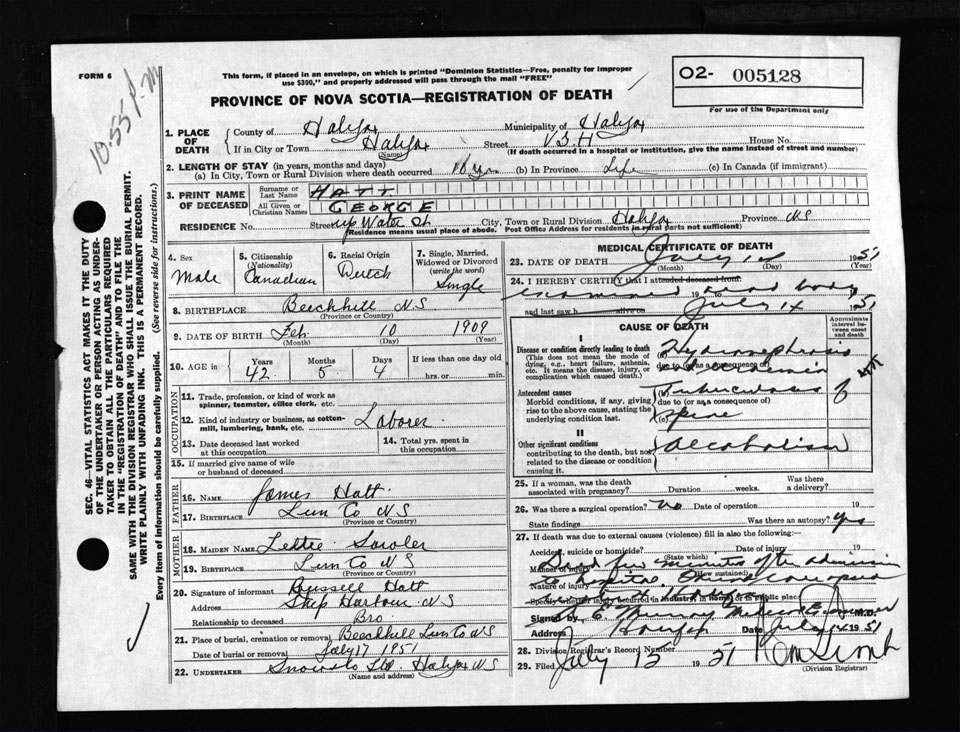 FORM 6
This form, if placed in an envelope, on which is printed "Dominion Statistics—Free, penalty for improper
use $300," and properly addressed will pass through the mail "FREE"
O2- 005128
For use of the Department only
10.55 P.M
PROVINCE OF NOVA SCOTIA—REGISTRATION OF DEATH
1. PLACE OF DEATH
County of Halifax Municipality of Halifax
If in City or Town Halifax Street V.G.H House No.
(Name) (If death occurred in a hospital or institution, give the name instead of street and number)
2. LENGTH OF STAY (in years, months and days)
(a) In City, Town or Rural Division where death occurred 10 yrs (b) In Province Life (c) In Canada (if immigrant)
3. PRINT NAME OF DECEASED
Surname or Last Name HATT
All Given or Christian Names GEORGE
RESIDENCE No. Street up Water St. City, Town or Rural Division Halifax Province NS
Residence means usual place of abode. Post Office Address for residents in rural parts not sufficient)
4. Sex Male
5. Citizenship (Nationality) Canadian
6. Racial Origin Dutch
7. Single, Married, Widowed or Divorced (write the word) Single
8. BIRTHPLACE Beechhill NS
(Province or Country)
9. DATE OF BIRTH Feb 10 1909
(Month) (Day) (Year)
10. AGE in Years 42 Months 5 Days 4 If less than one day old hrs. or min.
OCCUPATION
11. Trade, profession, or kind of work as spinner, teamster, office clerk, etc.
12. Kind of industry or business, as cotton-mill, lumbering, bank, etc. Laborer
13. Date deceased last worked at this occupation
14. Total yrs. spent in this occupation
15. If married give name of wife or husband of deceased
FATHER
16. NAME James Hatt
17. BIRTHPLACE Lun Co NS
(Province or Country)
MOTHER
18. MAIDEN NAME Lettie
19. BIRTHPLACE Lun Co NS
(Province or Country)
20. Signature of informant Russell Hatt
Address Ship Harbour NS
Relationship to deceased Bro
21. Place of burial, cremation or removal Beechhill Lun Co NS
Date of burial or removal July 17 1951
22. UNDERTAKER Snow's Ltd. Halifax NS
(Name and address)
MEDICAL CERTIFICATE OF DEATH
23. DATE OF DEATH July 14 1951
(Month) (Day) (Year)
24. I HEREBY CERTIFY that I attended deceased from:
examined dead body
19 to
and last saw h alive on July 14 1951
CAUSE OF DEATH
Approximate interval between onset and death
I
Disease or condition directly leading to death
(This does not mean the mode of dying, e.g., heart failure, asthenia, etc. It means the disease, injury, or complication which caused death.)
due to (or as a consequence of)
Antecedent causes
Morbid conditions, if any, giving rise to the above cause, stating the underlying condition last.
(b) Tuberculosis of
due to (or as a consequence of)
(c) spine
II
Other significant conditions
contributing to the death, but not related to the disease or condition causing it.
Alcoholism
25. If a woman, was the death associated with pregnancy? Duration weeks. Was there a delivery?
26. Was there a surgical operation? No Date of operation 19
State findings Was there an autopsy? Yes
27. If death was due to external causes (violence) fill in also the following:—
Accident, suicide or homicide? Date of injury 19
(State which)
Manner of injury
(How sustained)
Died few minutes after admission
to hospital.
Nature of injury
Specify whether injury occurred in industry, in home, or in public place
Signed Medical Examiner M.D.
Address Halifax Date July 14 1951
28. Division Registrar's Record Number
29. Filed July 1951
(Division Registrar)
SEC. 46—VITAL STATISTICS ACT MAKES IT THE DUTY
OF THE UNDERTAKER OR PERSON ACTING AS UNDER-
TAKER TO OBTAIN ALL THE PARTICULARS REQUIRED
IN THE "REGISTRATION OF DEATH" AND TO FILE THE
SAME WITH THE DIVISION REGISTRAR WHO SHALL ISSUE THE BURIAL PERMIT.
WRITE PLAINLY WITH UNFADING INK. THIS IS A PERMANENT RECORD.
Every item of information should be carefully supplied. (See reverse side for instructions.)